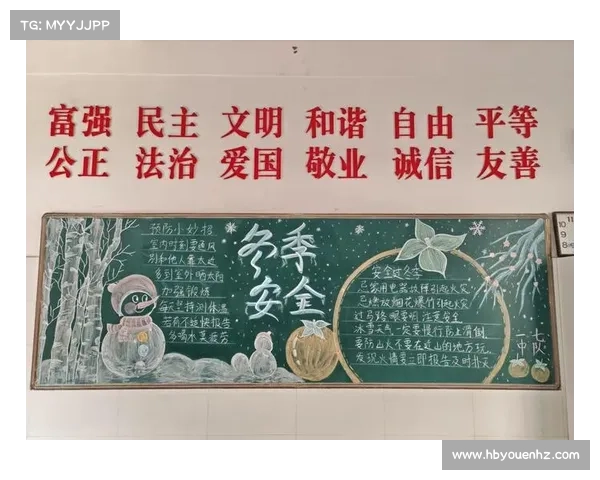 TG: MYYJJPP
富强 民主 文明 和谐 自由 平等
公正 法治 爱国 敬业 诚信 友善
预防小妙招
室内时刻要通风
别和他人靠太近
多到室外晒太阳
加强锻炼
每天坚持测体温
若有不适快报告
多喝水莫疲劳
冬季
安全
安全过冬季
已家用电器故障引起火灾
已燃放烟花爆竹引起火灾
过马路 眼要明 注意安全
冰雪天气一定要慢行防止滑倒
要防山火不要在近山的地方玩
发现火情要立即报告及时扑灭
11
10
9
8
www.hbyouenhz.com